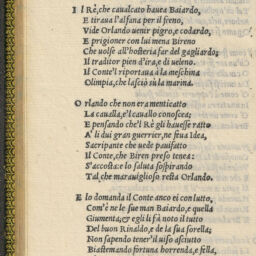 I l Rè, che caualcato haueа Baiardo,
E tiraua l'alfana per il freno,
Vide Orlando uenir pigro, e codardo,
E prigioner con lui mena Bireno
Che uolse all'hosteria far del gagliardo;
Il traditor pien d'ira, e di ueleno.
Il Conte'l riportaua à la meschina
Olimpia, che lasciò sù la marina.
O rlando che non era menticatto
La caualla, e'l cauallo conoscea;
E pensando che'l Rè gli hauesse ratto
A' li dui gran guerrier, ne sua Idea,
Sacripante che uede pauisatto
Il Conte, che Biren preso tenea:
S'accosta: e lo saluta sospirando
Tal, che marauiglioso resta Orlando.
E lo domanda il Conte anco ei con lutto,
Com'è ne le sue man Baiardo, e quella
Giumenta; & egli li fà noto il tutto
Del buon Rinaldo, e de la sua sorella;
Non sapendo tener'il uiso asciutto
Biastemando fortuna horrenda, e fella,